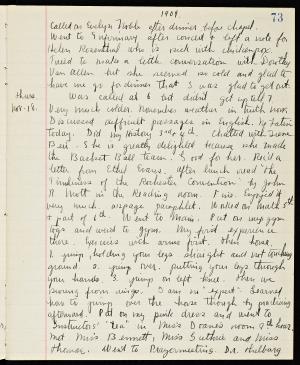 1909
73
Called on Evelyn Noble after dinner before chapel.
Went to Infirmary after concert & left a note for
Helen Rosenthal who is sick with chickenpox.
Tried to make a little conversation with Dorothy
Van Allen but she seemed so cold and glad to
have me go for dinner that I was glad to get out.
Thurs
Nov. 18.
Was called at 6 but didn't get up till 7.
Very much colder. November weather in truth now.
Discussed different passages in English.
today. Did my History 3rd & 4th. Chatted with
She is greatly delighted because she made
the Basket Ball team. Good for her. Rec'd a
letter from Ethel Evans. After lunch read "The
Timeliness of the Rochester Convention" by John
R. Mott in the Reading Room. Enjoyed it
very much. pamphlet. Worked on math 5th
& part of 6th. Went to Main. Put on my gym
togs and went to gym. My first experience
there. Exercises with arms first, then horse.
1. jump holding your legs straight and not touching
ground. 2. jump over, putting your legs through
your hands. 3. jump on left knee. Then we
swung from rings. I am in "expert". Learned
how to jump over the horse though by practicing
afterward. Put on my pink dress and went to
Instructors' "Tea" in Miss Doane's room 9th hour.
Met Miss Bennett, Miss Guthrie and Miss
Thomas. Went to Prayermeeting. Dr.